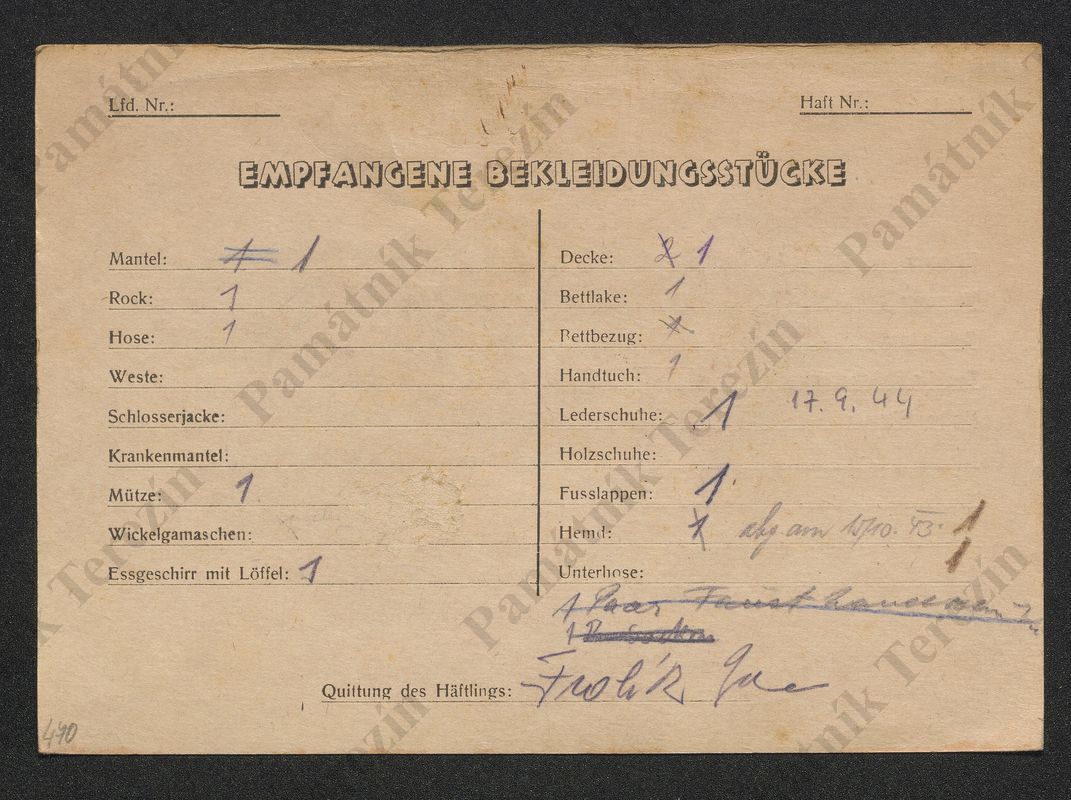 Lfd. Nr.:
Haft Nr.:
EMPFANGENE BEKLEIDUNGSSTÜCKE
Mantel: 1 1
Rock: 1
Hose: 1
Weste:
Schlosserjacke:
Krankenmantel:
Mütze: 1
Wickelgamaschen:
Essgeschirr mit Löffel: 1
Decke: 2 1
Bettlake: 1
Bettbezug: 1
Handtuch: 1
Lederschuhe: 1 17. 9. 44
Holzschuhe:
Fusslappen: 1
Hemd: 1 abg am 15/10. 43. 1
Unterhose: 1
1 Paar
1
Quittung des Häftlings: Frolík
470
Památník Terezín